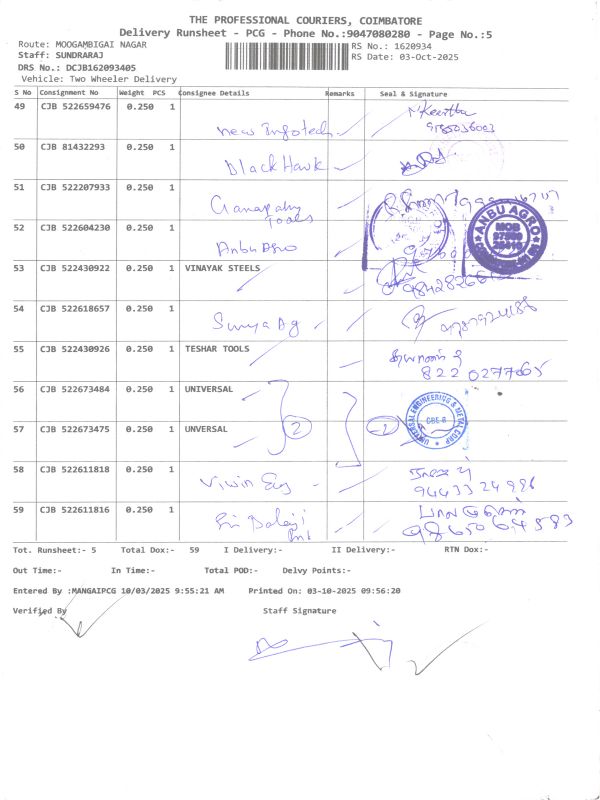 THE PROFESSIONAL COURIERS, COIMBATORE
Delivery Runsheet - PCG - Phone No.:9047080280 - Page No.:5
Route: MOOGAMBIGAI NAGAR RS No.: 1620934
Staff: SUNDRARAJ RS Date: 03-Oct-2025
DRS No.: DCJB162093405
Vehicle: Two Wheeler Delivery
S No Consignment No Weight PCS Consignee Details Remarks Seal & Signature
49 CJB 522659476 0.250 1 New Infotech N Keertba
50 CJB 81432293 0.250 1 Black Hawk
51 CJB 522207933 0.250 1 Ganapathy Tools
52 CJB 522604230 0.250 1 Anbu Agro
ANBU AGRO
MOB
53 CJB 522430922 0.250 1 VINAYAK STEELS
54 CJB 522618657 0.250 1 Surya Ag
55 CJB 522430926 0.250 1 TESHAR TOOLS
8220277065
56 CJB 522673484 0.250 1 UNIVERSAL
UNIVERSAL ENGINEERING & METAL CORP
CBE-6
57 CJB 522673475 0.250 1 UNVERSAL 2 2
58 CJB 522611818 0.250 1 Viwin Eng
9443324996
59 CJB 522611816 0.250 1 Sri Balaji
9865064583
Tot. Runsheet:- 5 Total Dox:- 59 I Delivery:- II Delivery:- RTN Dox:-
Out Time:- In Time:- Total POD:- Delvy Points:-
Entered By :MANGAIPCG 10/03/2025 9:55:21 AM Printed On: 03-10-2025 09:56:20
Verified By Staff Signature